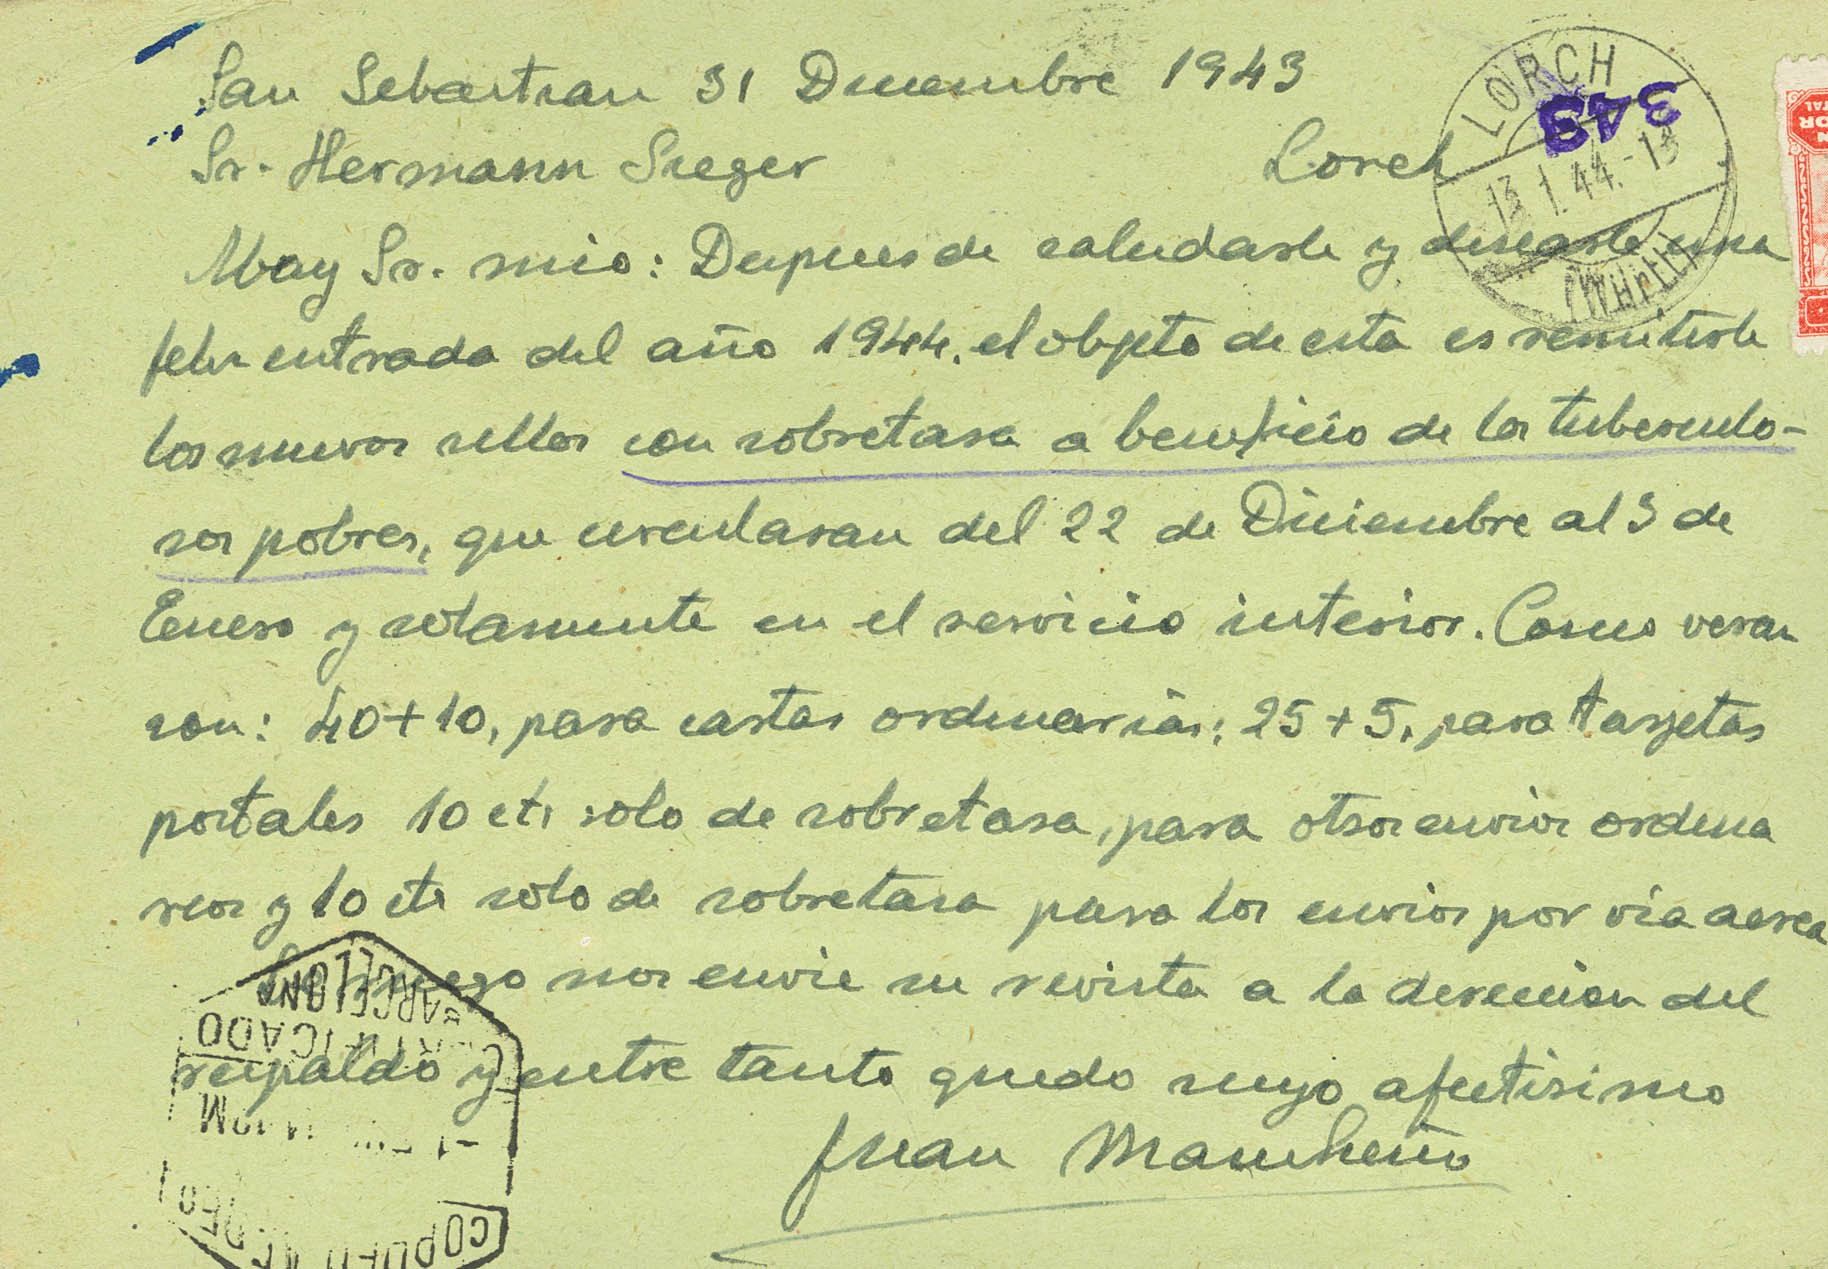 San Sebastian 31 Diciembre 1943
Sr. Hermann Sieger Lorch
Muy Sr. mio: Despues de saludarle y desearle una
feliz entrada del año 1944, el objeto de esta es remitirle
los nuevos sellos con sobretasa a beneficio de los tuberculo-
sos pobres, que circularan del 22 de Diciembre al 3 de
Enero y solamente en el servicio interior. Como veran
son: 40+10, para cartas ordinarias; 25+5, para tarjetas
postales 10 cts solo de sobretasa, para otros envios ordina
rios y 10 cts solo de sobretasa para los envios por via aerea
ruego nos envie su revista a la direccion del
respaldo y entre tanto quedo suyo afectisimo
Juan Mancheño
LORCH
343
13.1.44.-13
(Württ)
BARCELONA
CERTIFICADO